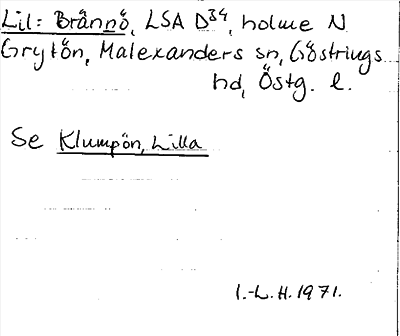 Lil: Brånnö, LSA D34, holme N
Grytön, Malexanders sn, Göstrings
hd, Östg. l.
Se Klumpön, Lilla
I.-L.H. 1971.